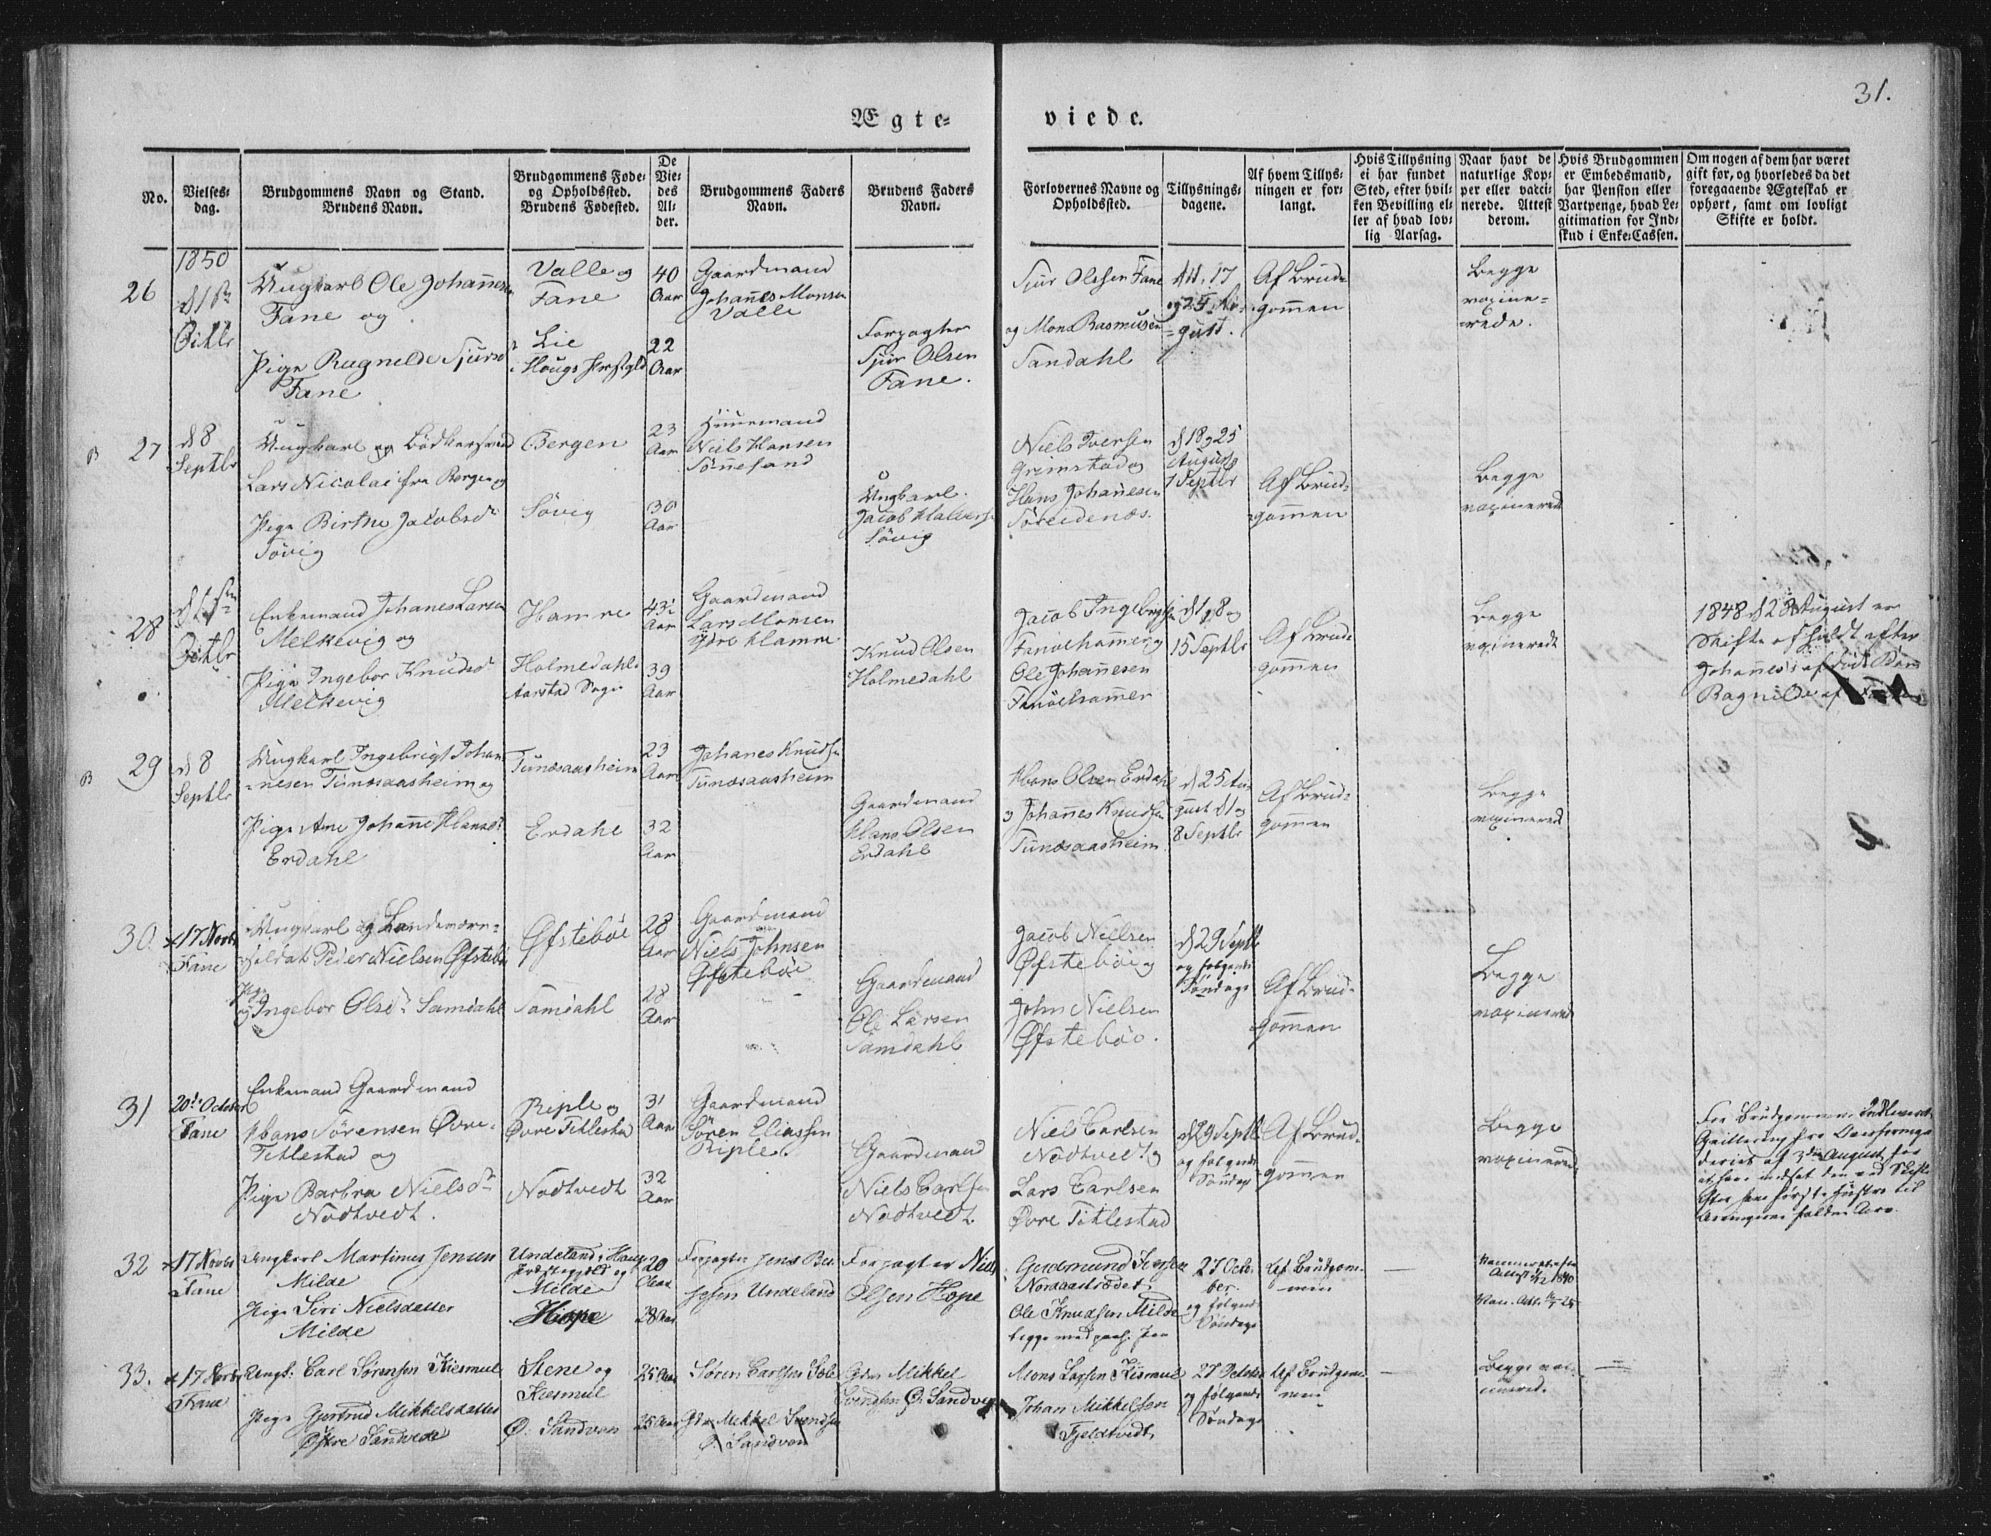 31.
Ægte= viede.
No.
Vielses=
dag.
Brudgommens Navn og Stand.
Brudens Navn.
Brudgommens Føde=
og Opholdssted.
Brudens Fødested.
De
Vie=
des
Al=
der.
Brudgommens Faders
Navn.
Brudens Faders
Navn.
Forlovernes Navne og
Opholdssted.
Tillysnings=
dagene.
Af hvem Tillys=
ningen er for=
langt.
Hvis Tillysning
ei har fundet
Sted, efter hvil=
ken Bevilling el=
ler af hvad lov=
lig Aarsag.
Naar havt de
naturlige Kop=
per eller vacci=
nerede. Attest
derom.
Hvis Brudgommen
er Embedsmand,
har Pension eller
Vartpenge, hvad Le=
gitimation for Ind=
skud i Enke=Cassen.
Om nogen af dem har været
gift før, og hvorledes da det
foregaaende Ægteskab er
ophørt, samt om lovligt
Skifte er holdt.
1850
26
Octbr
Ungkarl Ole Johannes
Fane og
Pige Ragnelde Sjursd
Fane
Valle og
Fane
Lie
Hougs
40
Aar
22
Aar
Gaardmand
Johanes Monsen
Valle
Forpagter
Sjur Olsen
Fane.
Sjur Olsen Fane
og Mons Rasmusen
Sandahl
d 11, 17
og 25 Au=
=gust.
Af Brud=
gommen
Begge
vaxine=
rede.
B 27
d 8
Septbr
Ungkarl og Bødkersvend
Lars Nicolai fra Bergen og
Pige Birthe Jacobsd
Søvig
Bergen
Søvig
23
Aar
30
Aar
Huusmand
Niels Hansen
Ungkarl
Jacob Halvors
Søvig
Niels Iversen
Grimstad og
Hans Johanesen
Søreidenæs.
d 18 og 25
August og
1 Septbr
Af Brud=
gommen
Begge
vaxinerede
28
Octbr
Enkemand Johanes Larsen
Melkevig og
Pige Ingebor Knudsd
Melkevig
Hamre
Holmedahls
Aarstad Sogn
43
Aar
39
Aar
Gaardmand
Lars Monsen
Ydre Hamre
Knud Olsen
Holmedahl
Jacob Ingebrigtsen
Fanøehammer og
Ole Johanesen
Fanøehammer
d 1, 8 og
15 Septbr
Af Brud=
gommen
Begge
vaxinerede
1848 d 28 August er
Skifte afholdt efter
Johannes's
Ragnilde af
B 29
d 8
Septbr
Ungkarl Ingebrigt Johan
=nesen Tunæsaasheim og
Pige Ane Johanne Hansd
Erdahl
Tunæsaasheim
Erdahl
23
Aar
32
Aar
Johanes Knudsen
Tunæsaasheim
Gaardmand
Hans Olsen
Erdahl
Hans Olsen Erdahl
og Johannes Knudsen
Tunæsaasheim
d 25 Au=
gust d 1 og
8 Septbr
Af Brud=
gommen
Begge
vaxinerede
30.
17 Novbr
Fane
Ungkarl og Landeværn=
soldat Peder Nielsen Øfstebøe
og Pige Ingebor Olsd Samdahl
Øfstebøe
Samdahl
28
Aar
28
Aar
Gaardmand
Niels Johnsen
Øfstebøe
Gaardmand
Ole Larsen
Samdahl
Jacob Nielsen
Øfstebøe og
John Nielsen
Øfstebøe.
d 29 Septbr
og følgende
Søndage
Af Brud=
gommen
Begge
vaxinerede
31
20de October
Fane
Enkemand Gaardmand
Hans Sørensen Øvre=
Titlestad og
Pige Barbra Nielsd
Nodtvedt.
Riple og
Øvre Titlestad
Nodtvedt
31
Aar
32
Aar
Gaardmand
Søren Eliassen
Riple.
Gaardmand
Niels Carlsen
Nodtvedt
Niels Carlsen
Nodtvedt og
Lars Carlsen
Øvre Titlestad
d 29 Septbr
og følgende
Søndage
Af Brud=
gommen
Begge
vaxinerede
For Brudgommen Indleveret
Qvittering fra Overformyn
deriet af 3die August for
at have indsat den ved Skifte
efter hans første Hustru til
Arvingerne faldne Arv.
32
17 Novbr
Fane
Ungkarl Martinus Jensen
Milde
Pige Siri Nielsdatter
Milde
Undeland, Haus
Præstegjeld og
Milde
Hope
20
Aar
28 Aar
Forpagter Jens
Undeland
Forpagter Niels
Olsen Hope
Gudmund Iversen
Nordaastrædet
Ole Knudsen Milde
27 Octo
ber
og følgende
Søndage
Af Brudgom=
men
—
1840
33.
17 Novbr
Fane
Ungk: Carl Sørensen Kiesmul
Pige Gjertrud Mikkelsdatter
Østre Sandven
Stene og
Kiesmul
Ø. Sandven
25 Aar
25 Aar
Søren Carlsen
Gdm Mekkel Svendsen
Ø. Sandven
Gdm Mikkel
Svendsen Ø. Sandven
Mons Larsen Kismul
Johan Mikkelsen
Fjeldtvedt.
27 October
og følgende
Søndage
Af Brudgom
men
—
Begge vac=
cinerede
—